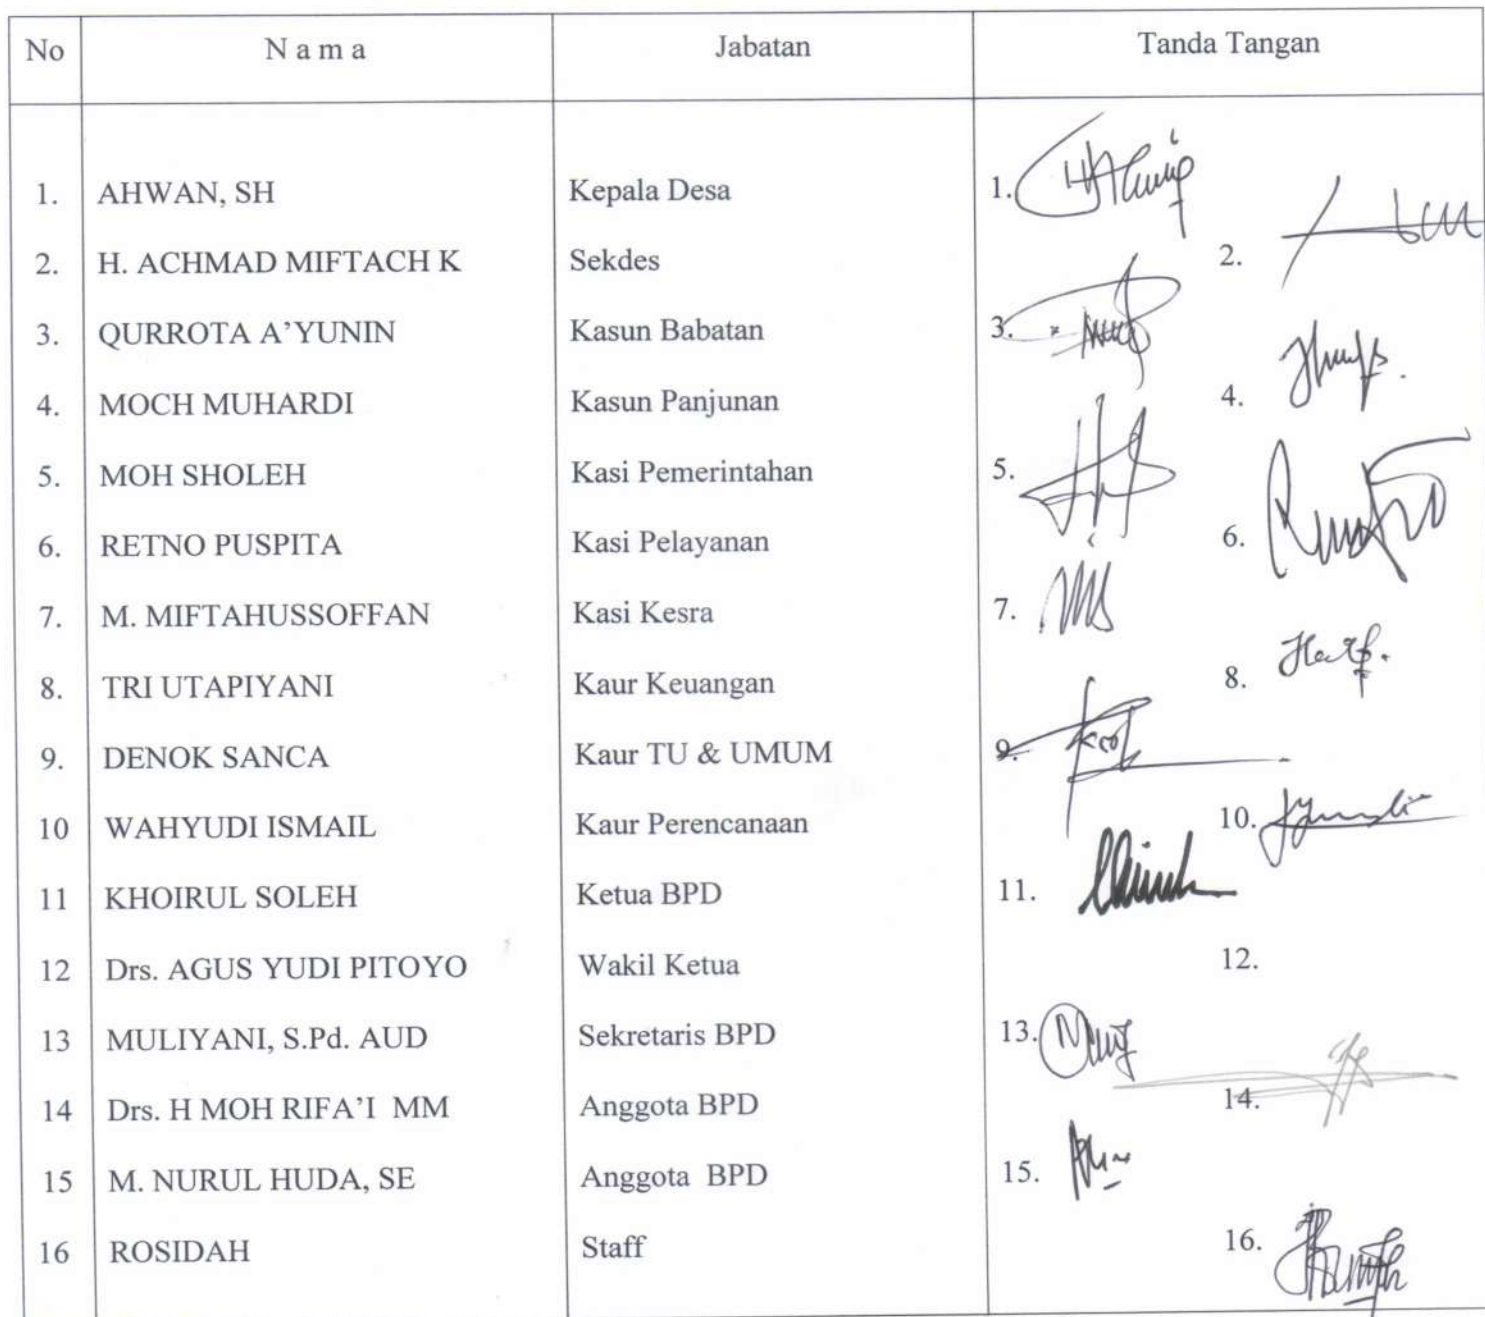 No N a m a Jabatan Tanda Tangan
1. AHWAN, SH Kepala Desa 1.
2. H. ACHMAD MIFTACH K Sekdes 2.
3. QURROTA A’YUNIN Kasun Babatan 3.
4. MOCH MUHARDI Kasun Panjunan 4.
5. MOH SHOLEH Kasi Pemerintahan 5.
6. RETNO PUSPITA Kasi Pelayanan 6.
7. M. MIFTAHUSSOFFAN Kasi Kesra 7.
8. TRI UTAPIYANI Kaur Keuangan 8.
9. DENOK SANCA Kaur TU & UMUM 9.
10 WAHYUDI ISMAIL Kaur Perencanaan 10.
11 KHOIRUL SOLEH Ketua BPD 11.
12 Drs. AGUS YUDI PITOYO Wakil Ketua 12.
13 MULIYANI, S.Pd. AUD Sekretaris BPD 13.
14 Drs. H MOH RIFA’I MM Anggota BPD 14.
15 M. NURUL HUDA, SE Anggota BPD 15.
16 ROSIDAH Staff 16.